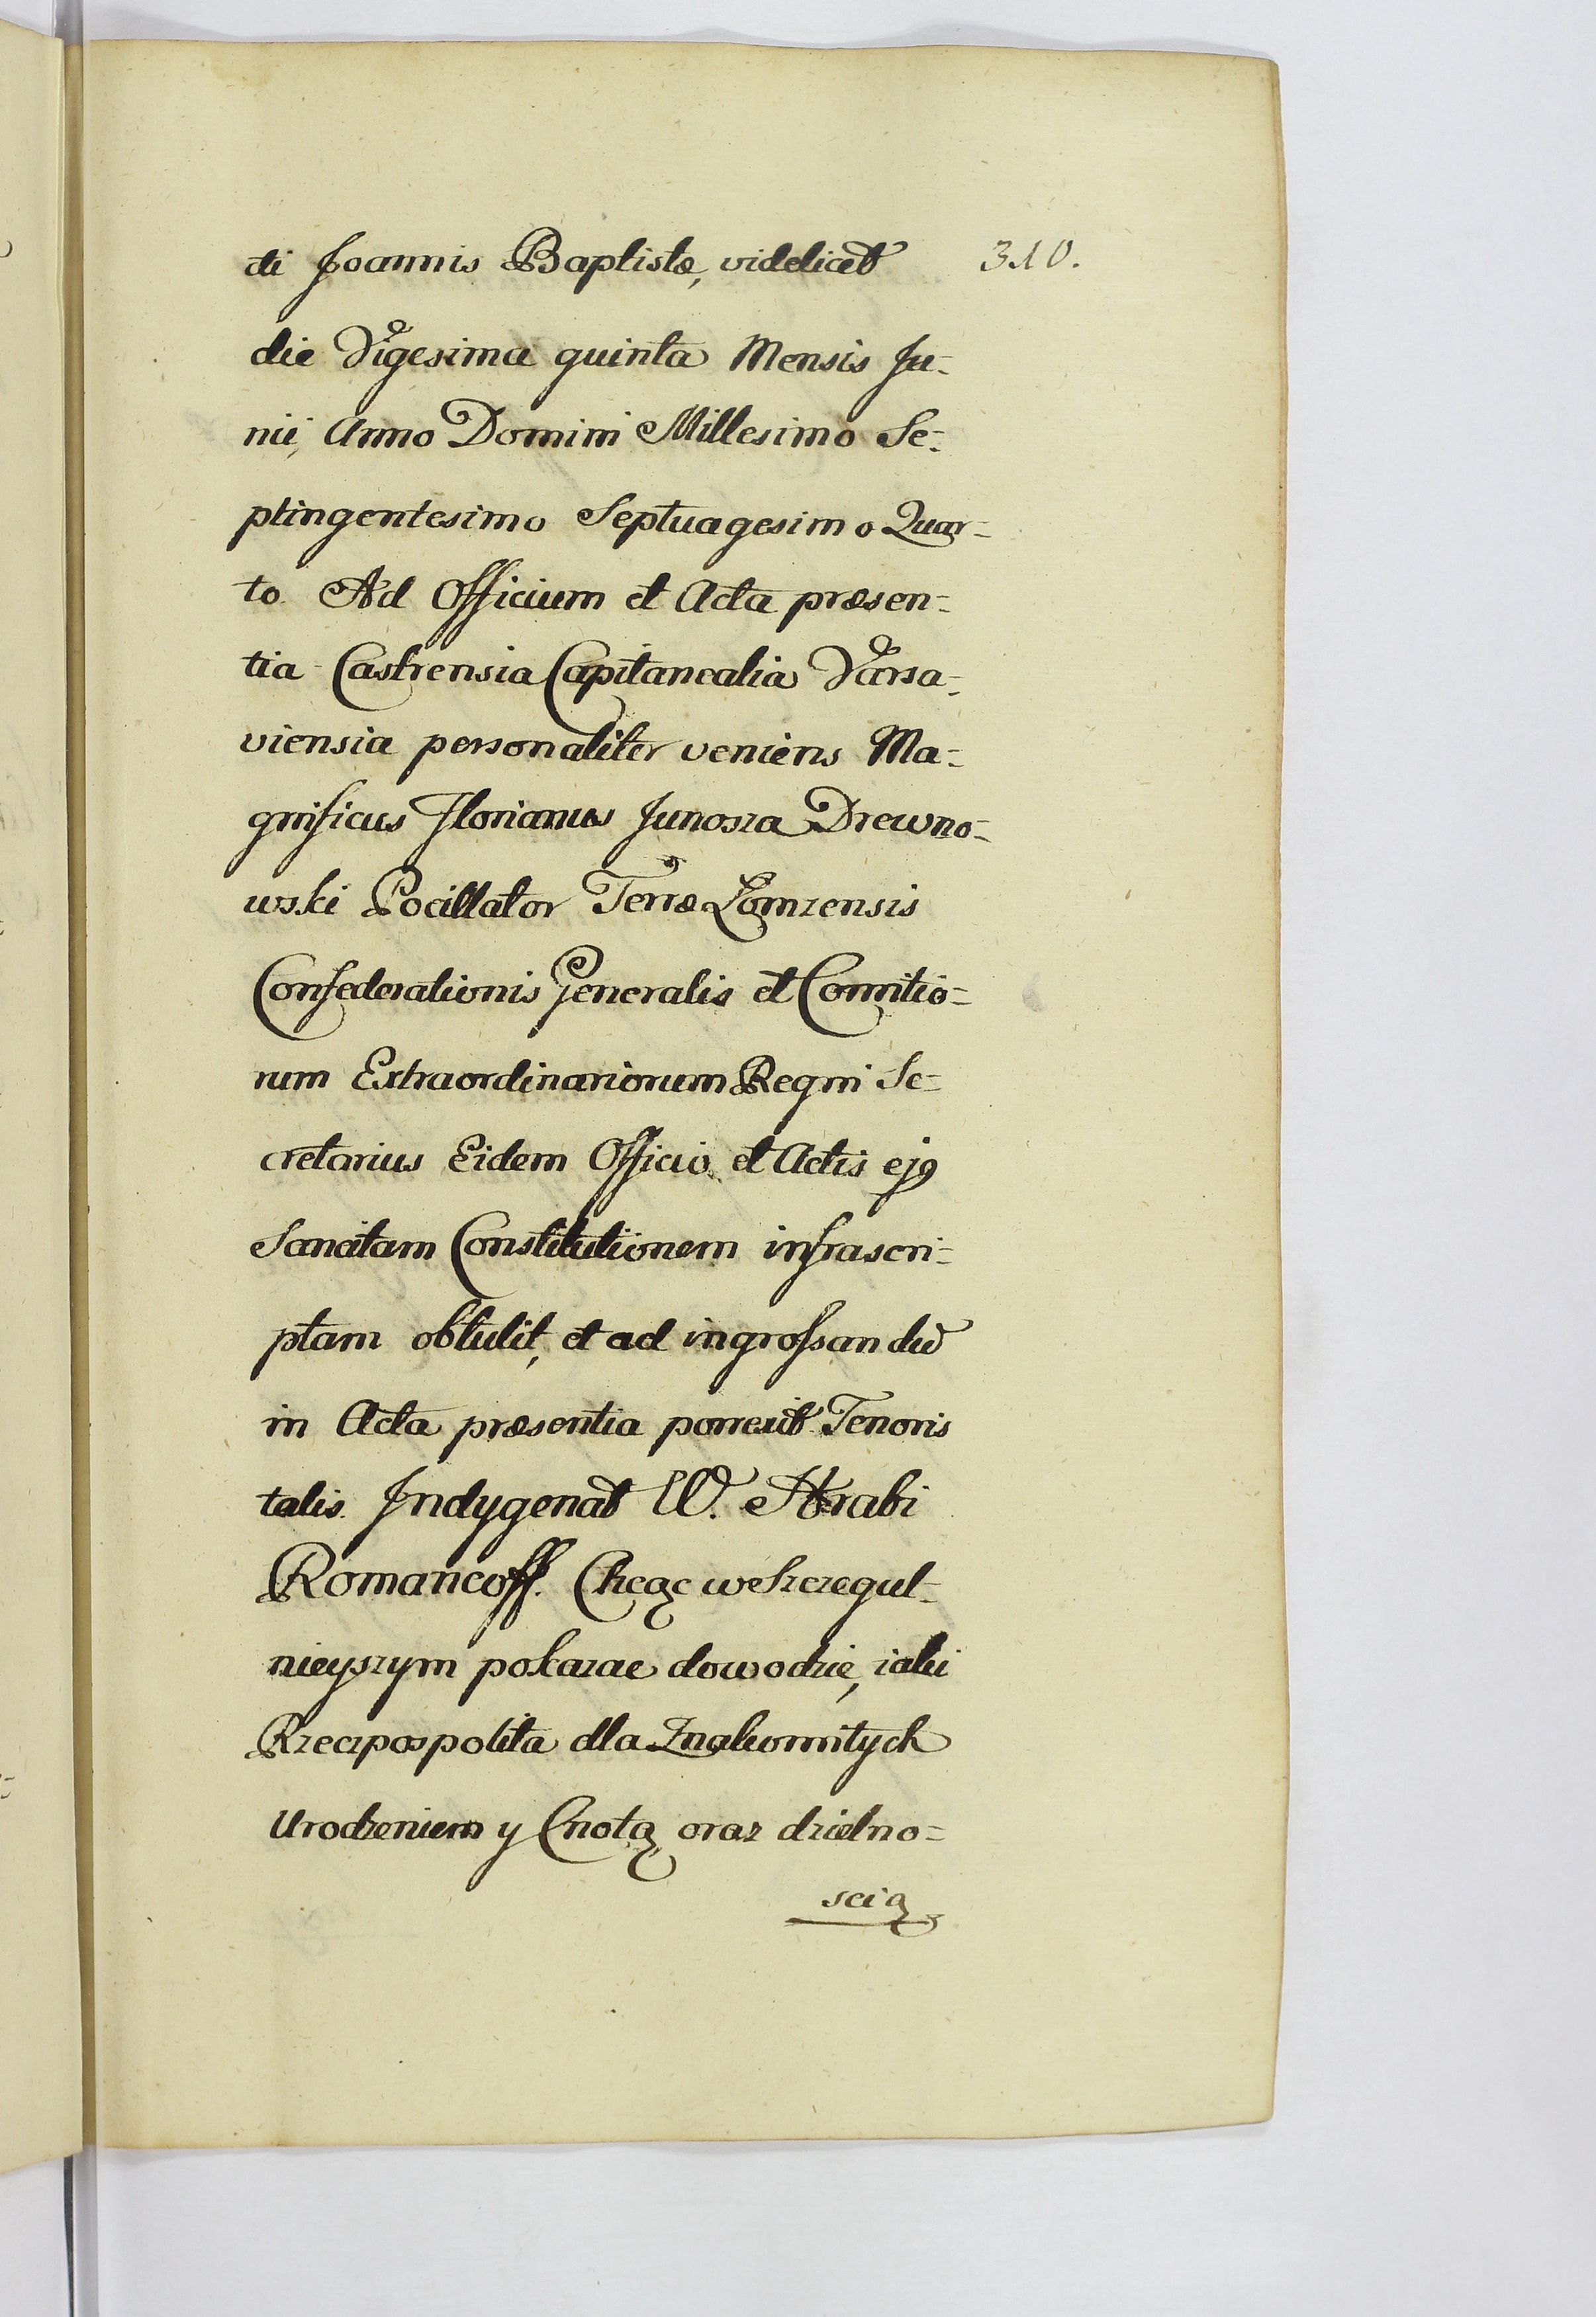 310.
di Joannis Baptistæ, videlicet
die Vigesima quinta Mensis Ju-
nii, Anno Domini Millesimo Se-
ptingentesimo Septuagesimo Quar-
to. Ad Officium et Acta præsen-
tia Castrensia Capitanealia Varsa-
viensia personaliter veniens Ma-
gnificus Florianus Junosza Drewno-
wski Pocillator Terræ Łomzensis
Confederationis Generalis et Comitio-
rum Extraordinariorum Regni Se-
cretarius Eidem Officio et Actis ej9
Sancitam Constitutionem infrascri-
ptam obtulit, et ad ingrossandū
in Acta præsentia porrexit Tenoris
talis. Indygenat W. Hrabi
Romancoff. Chcąc w Szczegul-
nieyszym pokazac dowodzie, iaki
Rzeczpospolita dla Znakomitych
Urodzeniem y Cnotą oraz dzielno-
scią